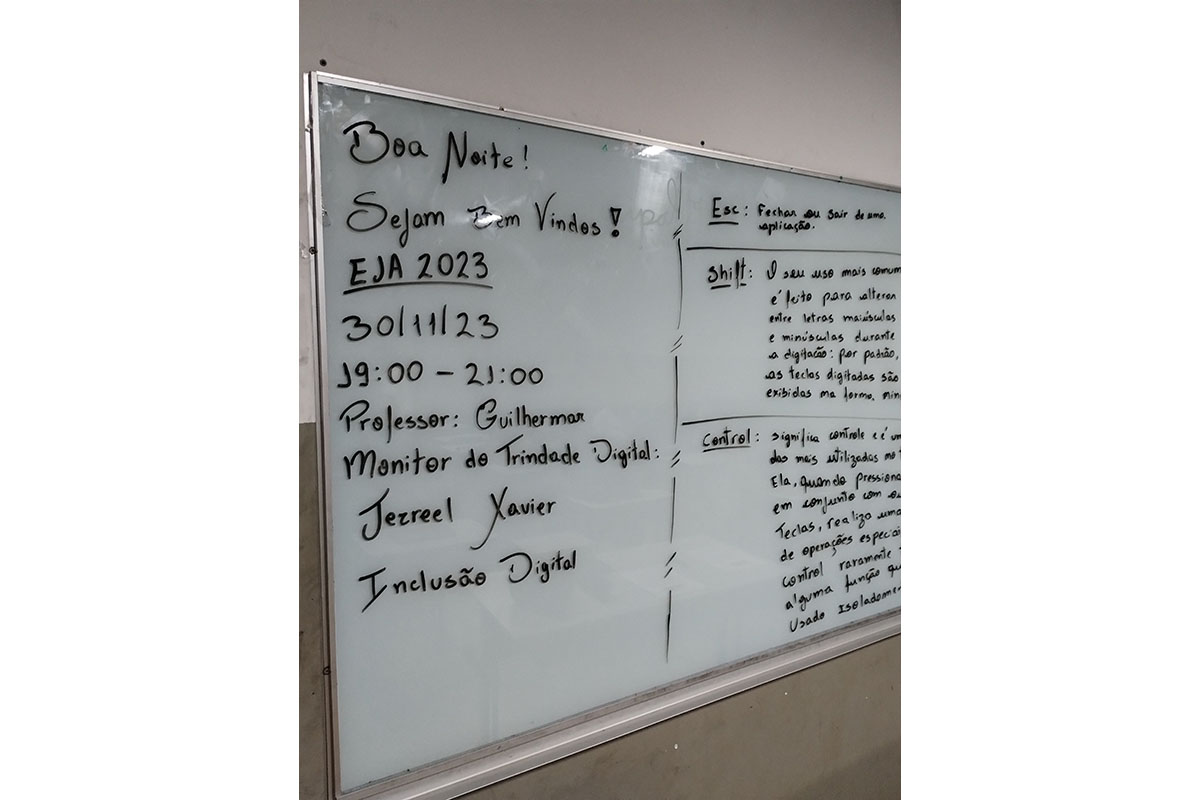 Boa Noite!
Sejam Bem Vindos!
EJA 2023
30/11/23
19:00 - 21:00
Professor: Guilhermar
Monitor do Trindade Digital:
Jezreel Xavier
Inclusão Digital
Esc: Fechar ou sair de uma
aplicação.
Shift: O seu uso mais comum
é feito para alterar
entre letras maiúsculas
e minúsculas durante
a digitação: por padrão,
as teclas digitadas são
exibidas na forma
Control: significa controle e é
das mais utilizadas
Ela, quando
em conjunto com
Teclas, realiza uma
de operações
control raramente
alguma função
Usado